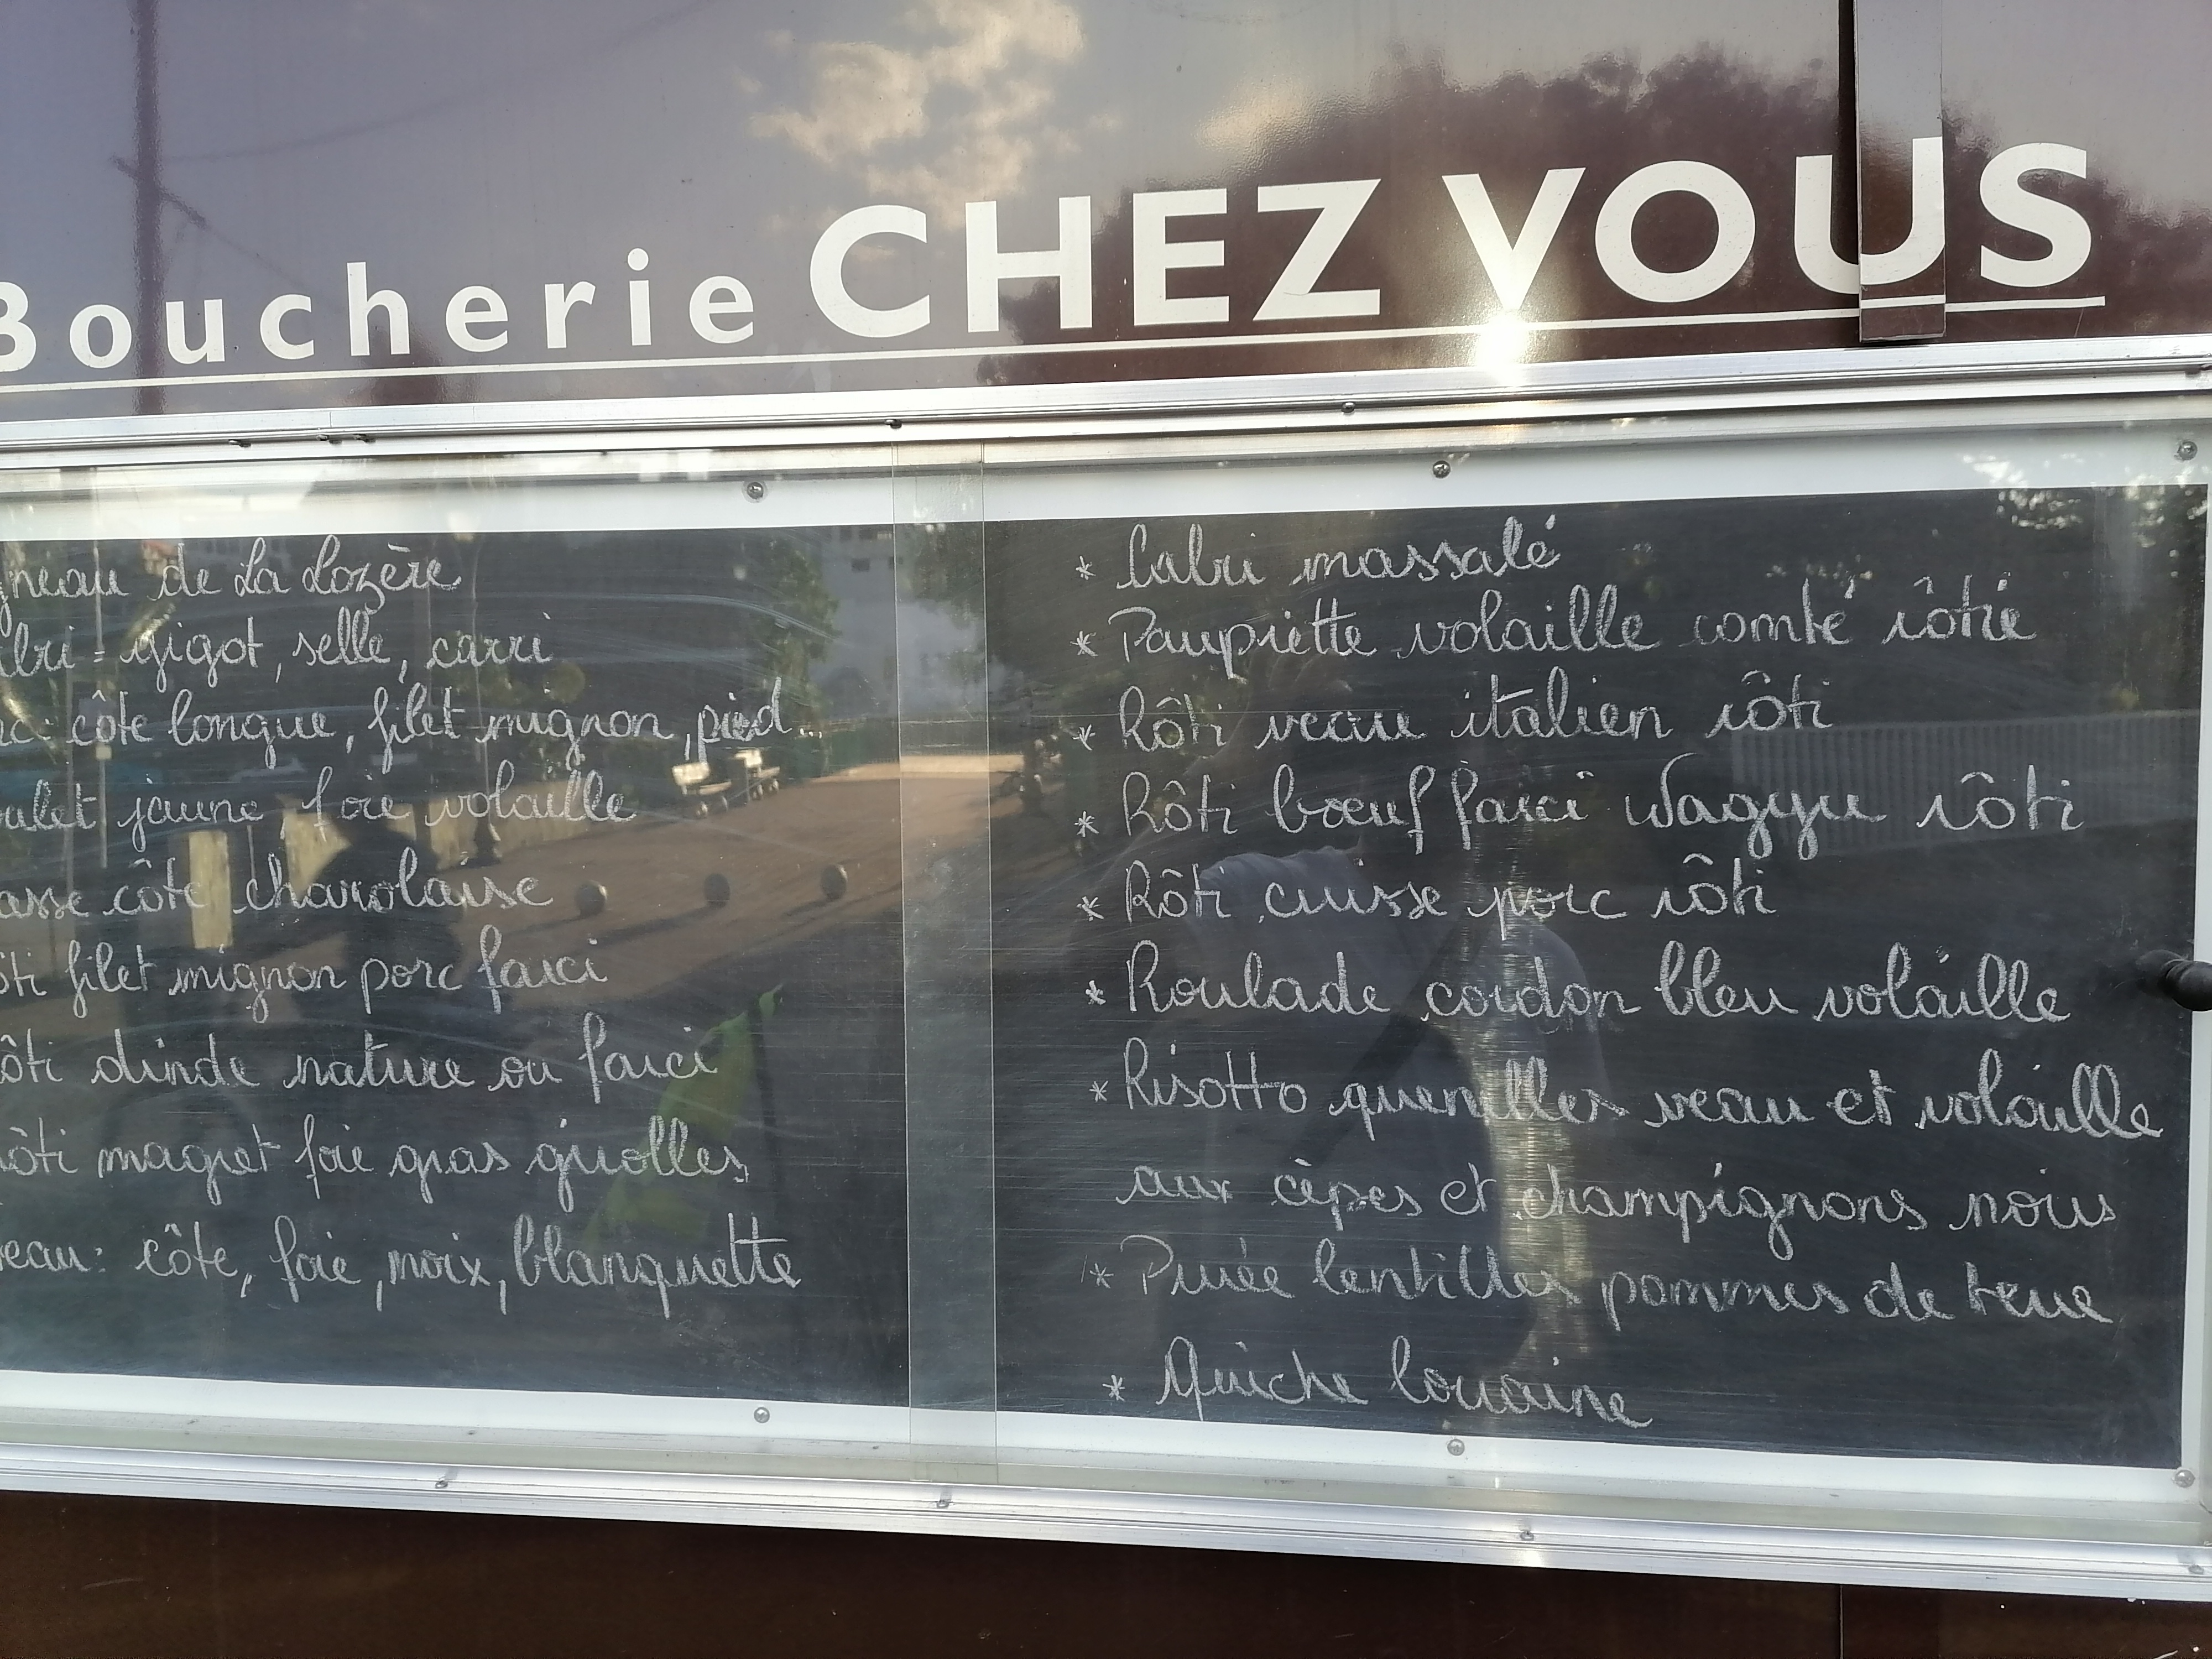 Boucherie CHEZ VOUS
gneau de La Lozère
bri = gigot, selle, carri
côte longue, filet mignon, pied
ulet jaune, foie volaille
asse côte charolaise
ôti filet mignon porc farci
ôti dinde nature ou farci
rôti magret foie gras griolles
eau: côte, foie, noix, blanquette
* Cabri massalé
* Paupiette volaille comté rôtie
* Rôti veau italien rôti
* Rôti bœuf farci Wagyu rôti
* Rôti cuisse porc rôti
* Roulade cordon bleu volaille
* Risotto quenelles veau et volaille
aux cèpes et champignons noirs
* Purée lentilles pommes de terre
* Quiche lorraine